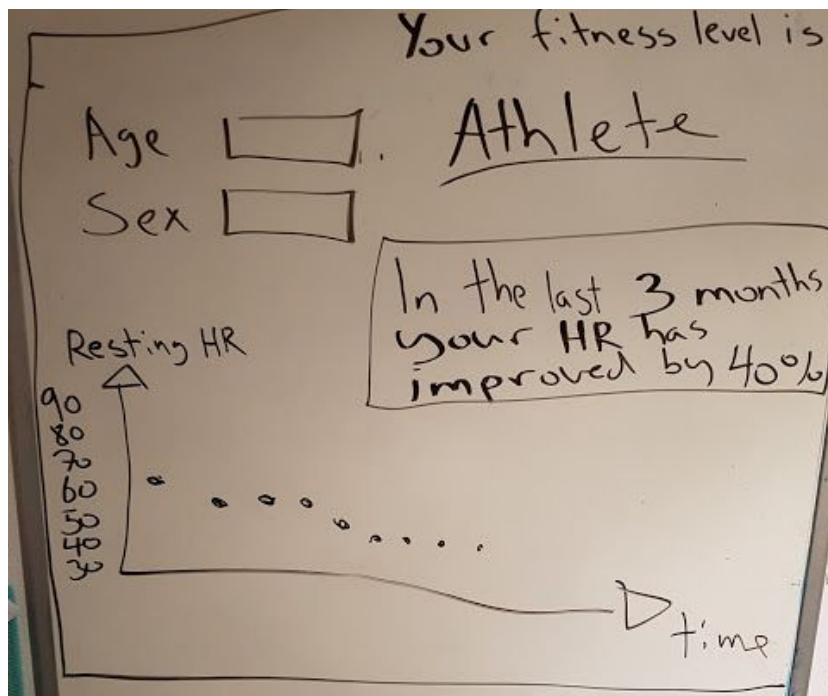 Your fitness level is
Age
Athlete
Sex
In the last 3 months
your HR has
improved by 40%
Resting HR
90
80
70
60
50
40
30
time